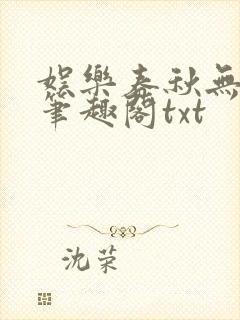 娛樂春秋無
筆趣閣txt
沈荣